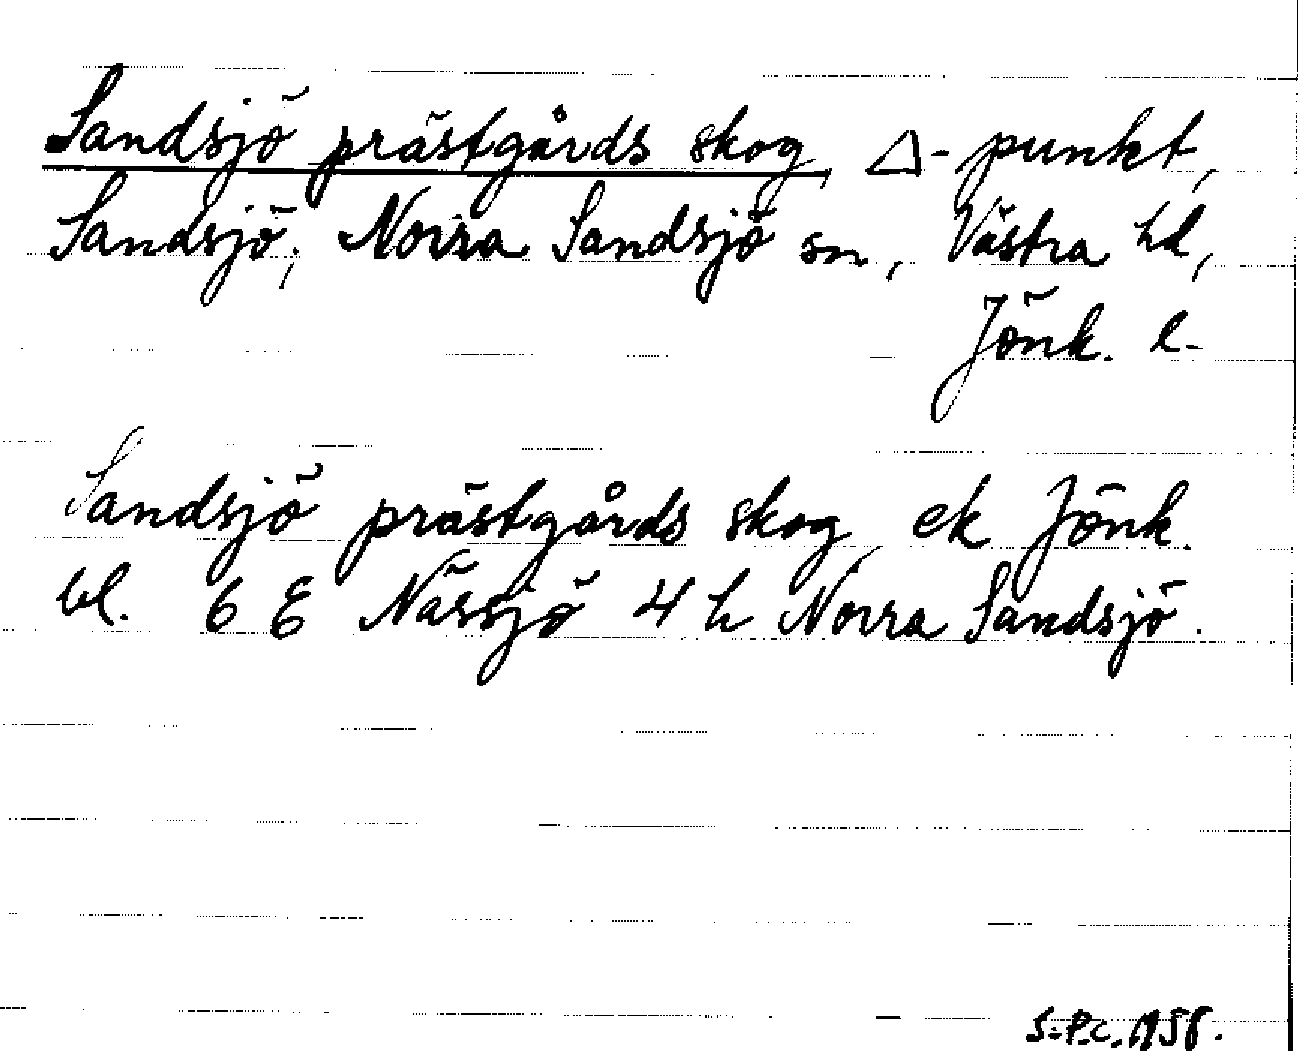 Sandsjö prästgårds skog, △-punkt,
Sandsjö; Norra Sandsjö sn, Västra hd,
Jönk. l.
Sandsjö prästgårds skog ek Jönk.
bl. 6 E Nässjö 4 h Norra Sandsjö.